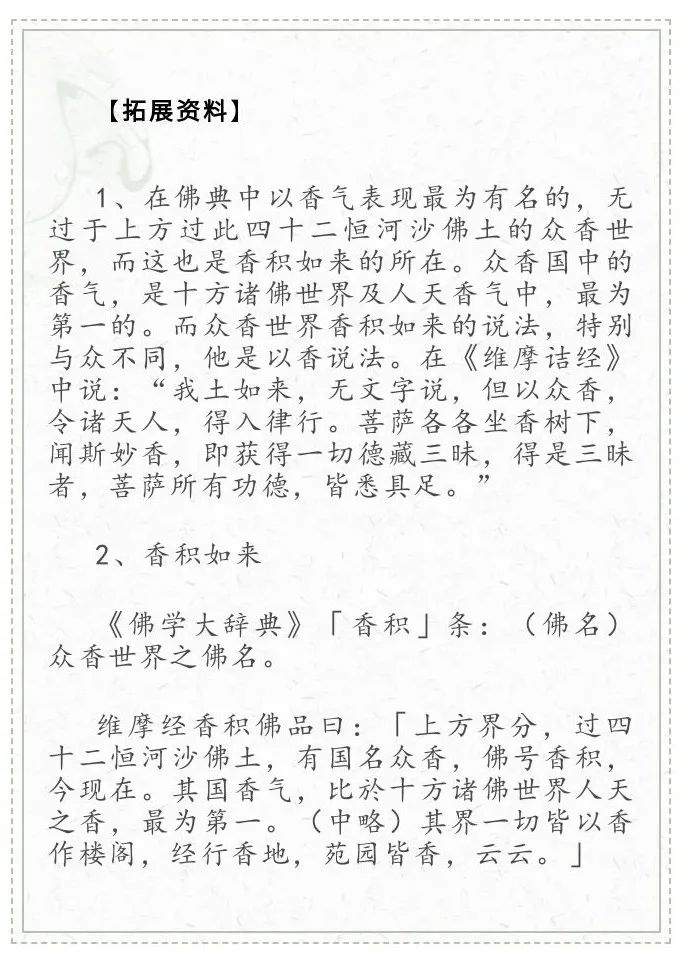 【拓展资料】
1、在佛典中以香气表现最为有名的，无
过于上方过此四十二恒河沙佛土的众香世
界，而这也是香积如来的所在。众香国中的
香气，是十方诸佛世界及人天香气中，最为
第一的。而众香世界香积如来的说法，特别
与众不同，他是以香说法。在《维摩诘经》
中说：“我土如来，无文字说，但以众香，
令诸天人，得入律行。菩萨各各坐香树下，
闻斯妙香，即获得一切德藏三昧，得是三昧
者，菩萨所有功德，皆悉具足。”
2、香积如来
《佛学大辞典》「香积」条：（佛名）
众香世界之佛名。
维摩经香积佛品曰：「上方界分，过四
十二恒河沙佛土，有国名众香，佛号香积，
今现在。其国香气，比於十方诸佛世界人天
之香，最为第一。（中略）其界一切皆以香
作楼阁，经行香地，苑园皆香，云云。」